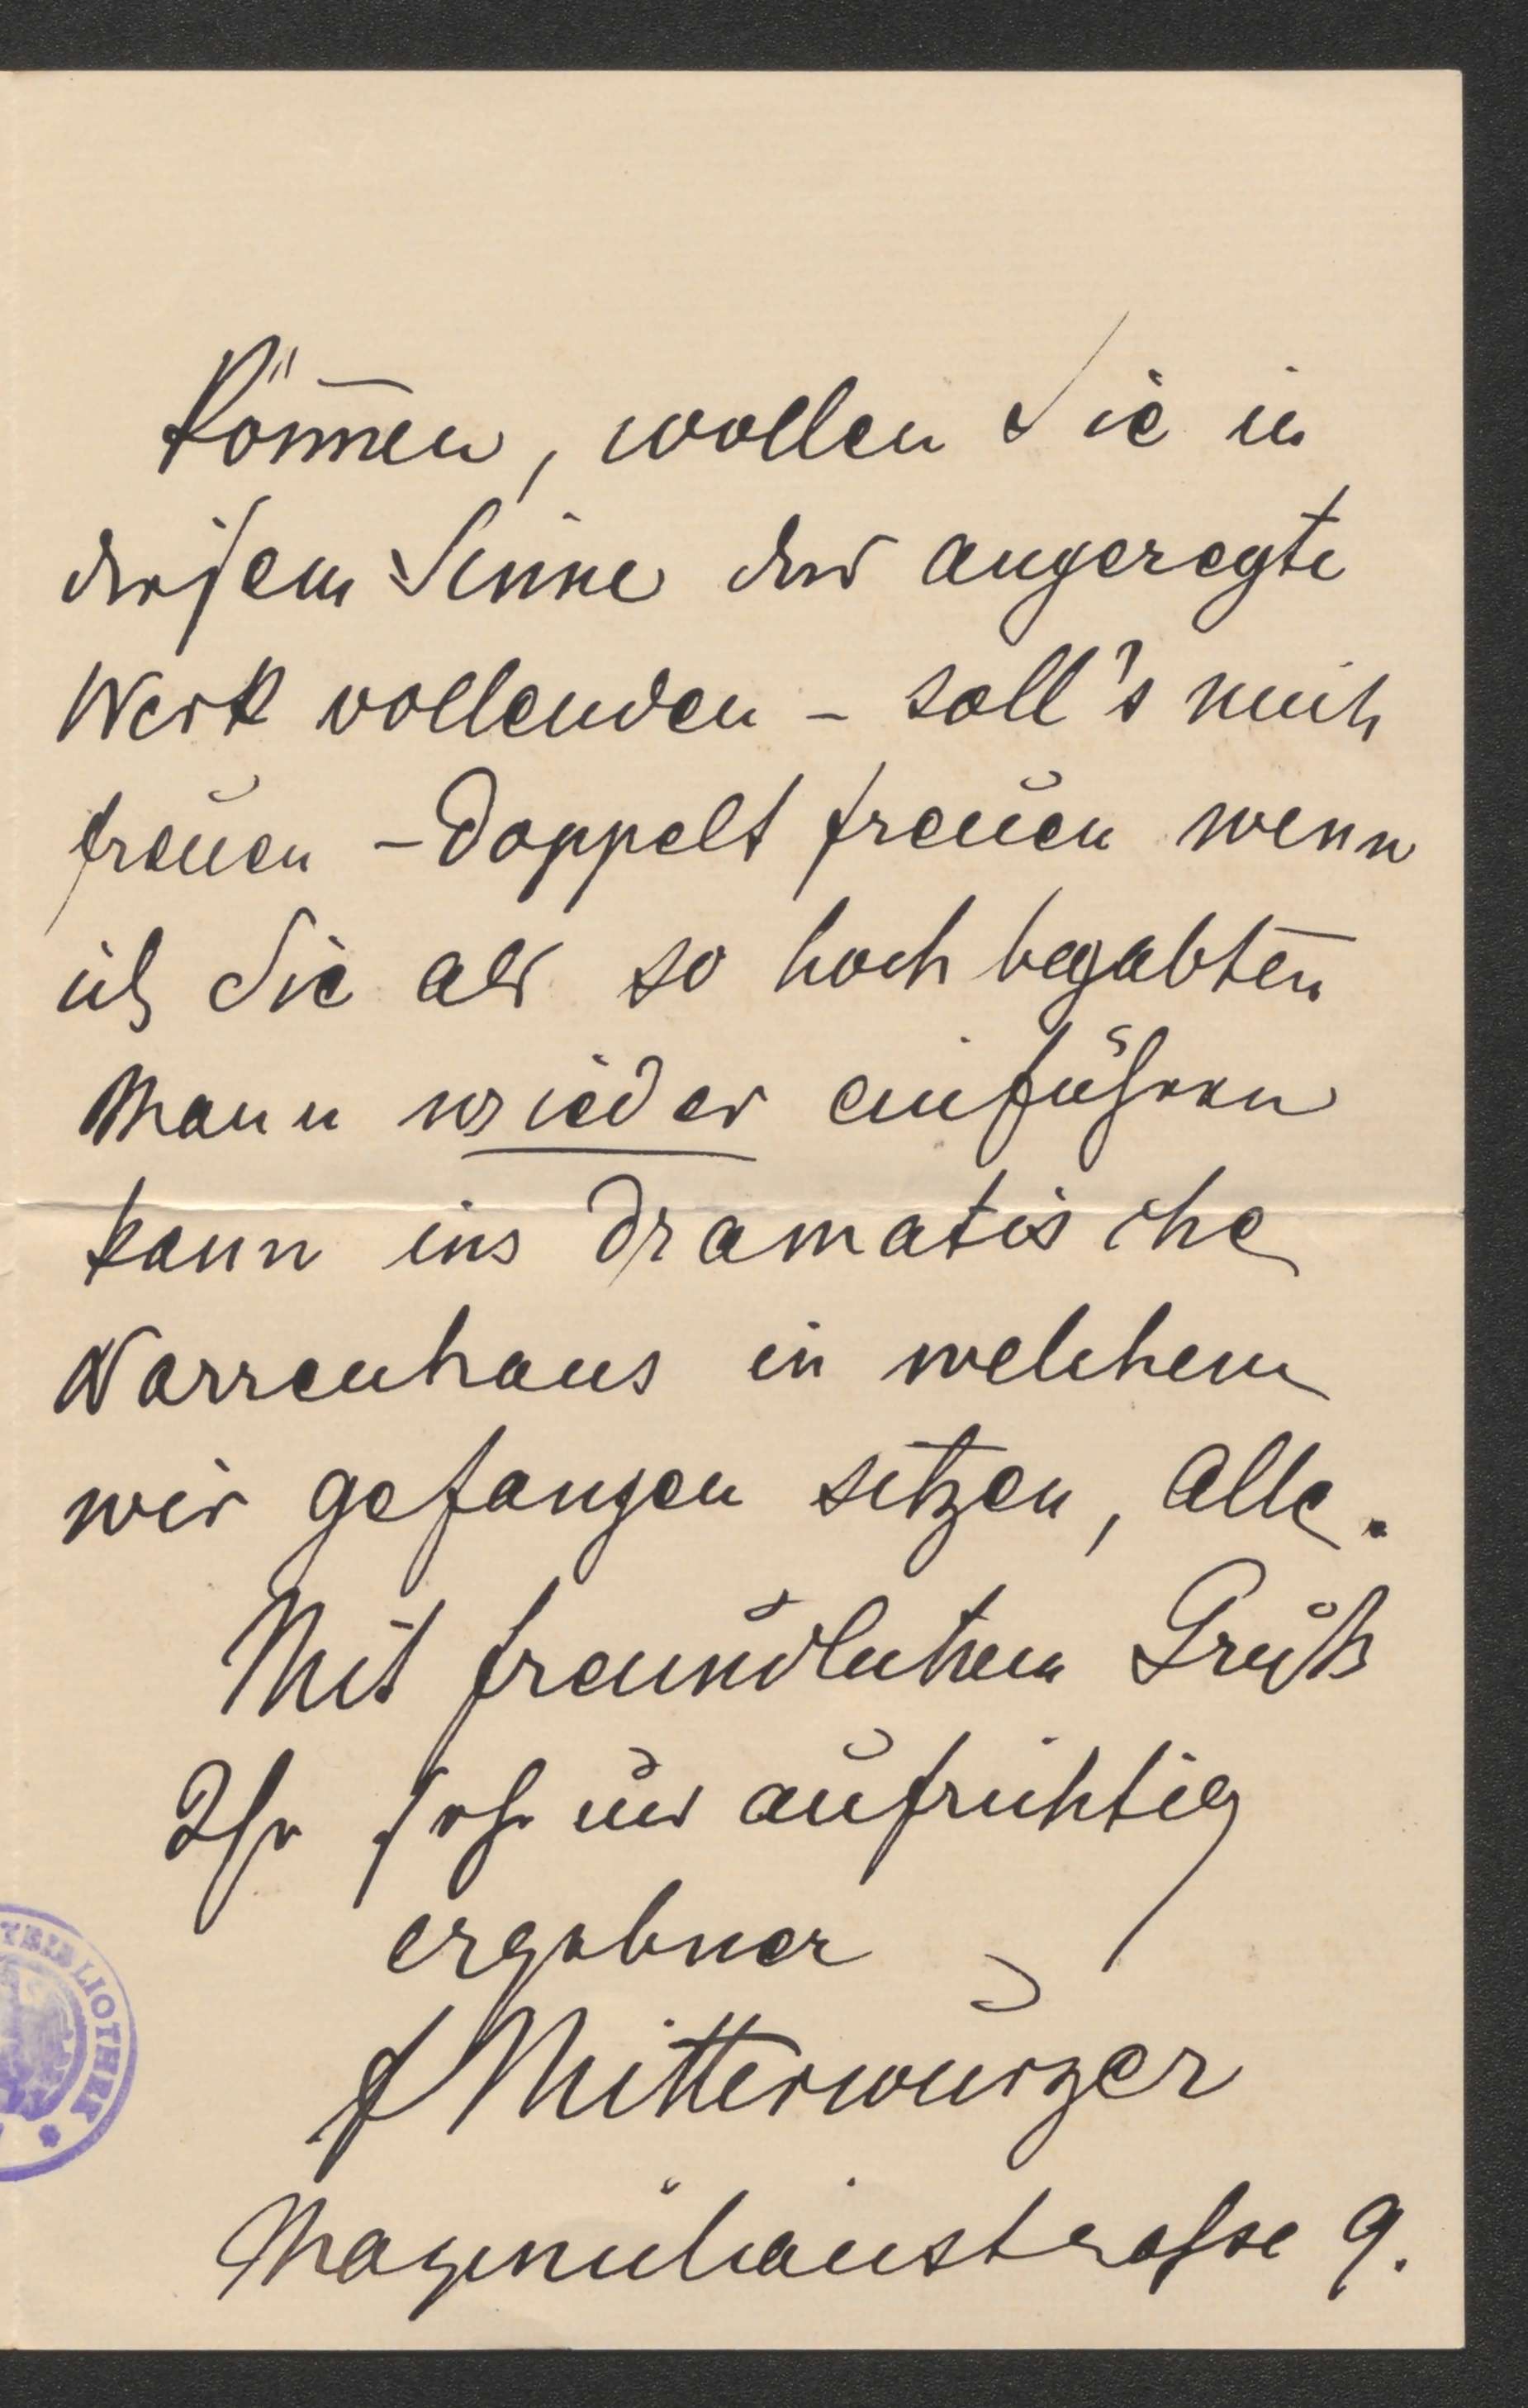 können, wollen Sie in
diesem Sinne das angeregte
Werk vollenden – soll's mich
freuen – doppelt freuen wenn
ich Sie als so hoch begabten
Mann wieder einführen
kann ins dramatische
Narrenhaus in welchem
wir gefangen sitzen, alle.
Mit freundlichem Gruß
Ihr sehr aufrichtig
ergebner
F Mitterwurzer
Maximilianstrasse 9.
BIBLIOTHEK